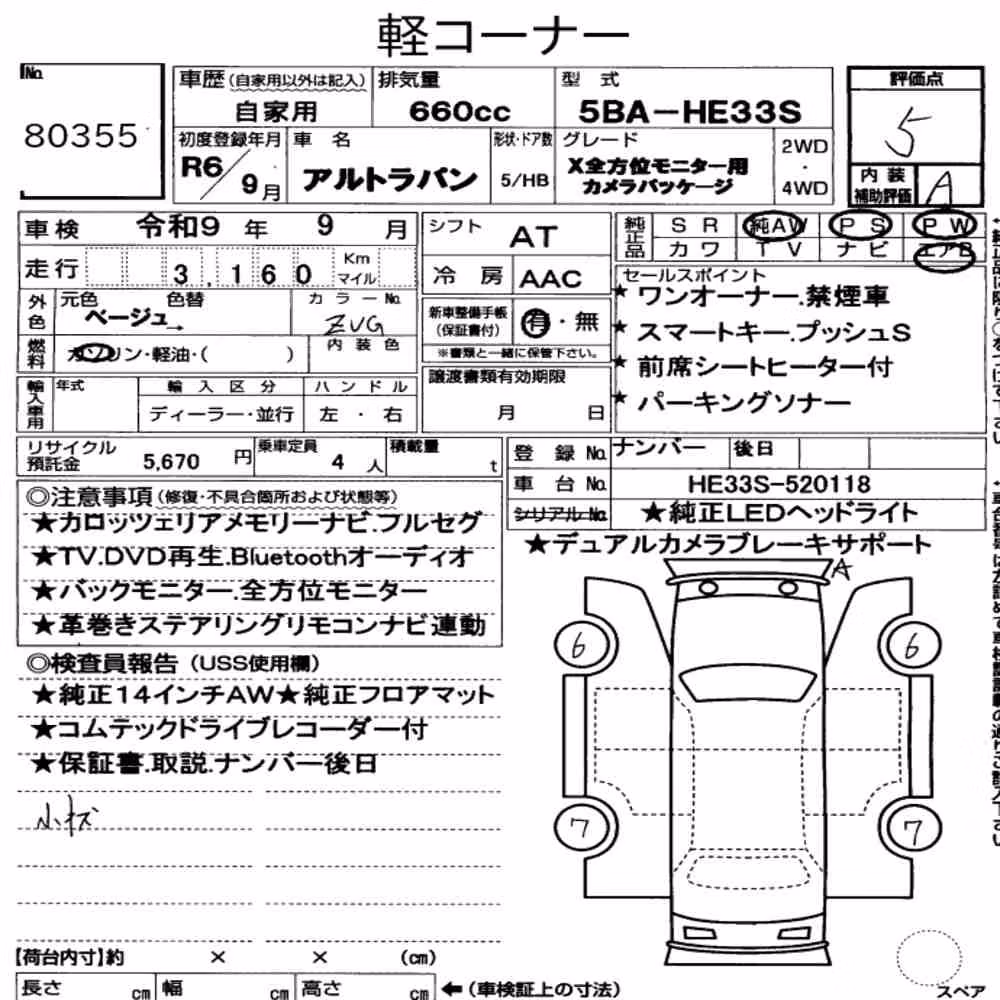 軽コーナー
No.
80355
車歴(自家用以外は記入)
自家用
排気量
660cc
型式
5BA-HE33S
評価点
5
初度登録年月
R6/9月
車名
アルトラパン
形状・ドア数
5/HB
グレード
X全方位モニター用
カメラパッケージ
2WD
・
4WD
内装
補助評価
A
車検 令和9年 9月
走行 3,160 Km
マイル
シフト
AT
冷房 AAC
純正品
SR 純AW PS PW
カワ TV ナビ エアB
外色
元色 色替
ベージュ→
カラーNo.
ZVG
燃料
ガソリン・軽油・( )
内装色
新車整備手帳
(保証書付)
有・無
※書類と一緒に保管下さい。
セールスポイント
★ワンオーナー.禁煙車
★スマートキー.プッシュS
★前席シートヒーター付
★パーキングソナー
輸入車用
年式
輸入区分
ディーラー・並行
ハンドル
左・右
譲渡書類有効期限
月 日
リサイクル
預託金
5,670円
乗車定員
4人
積載量
t
登録No. ナンバー 後日
車台No. HE33S-520118
シリアルNo. ★純正LEDヘッドライト
★デュアルカメラブレーキサポート
◎注意事項(修復・不具合箇所および状態等)
★カロッツェリアメモリーナビ.フルセグ
★TV.DVD再生.Bluetoothオーディオ
★バックモニター.全方位モニター
★革巻きステアリングリモコンナビ連動
◎検査員報告(USS使用欄)
★純正14インチAW★純正フロアマット
★コムテックドライブレコーダー付
★保証書.取説.ナンバー後日
小キズ
A
6
6
7
7
【荷台内寸】約 × × (cm)
長さ cm 幅 cm 高さ cm ←(車検証上の寸法)
スペア